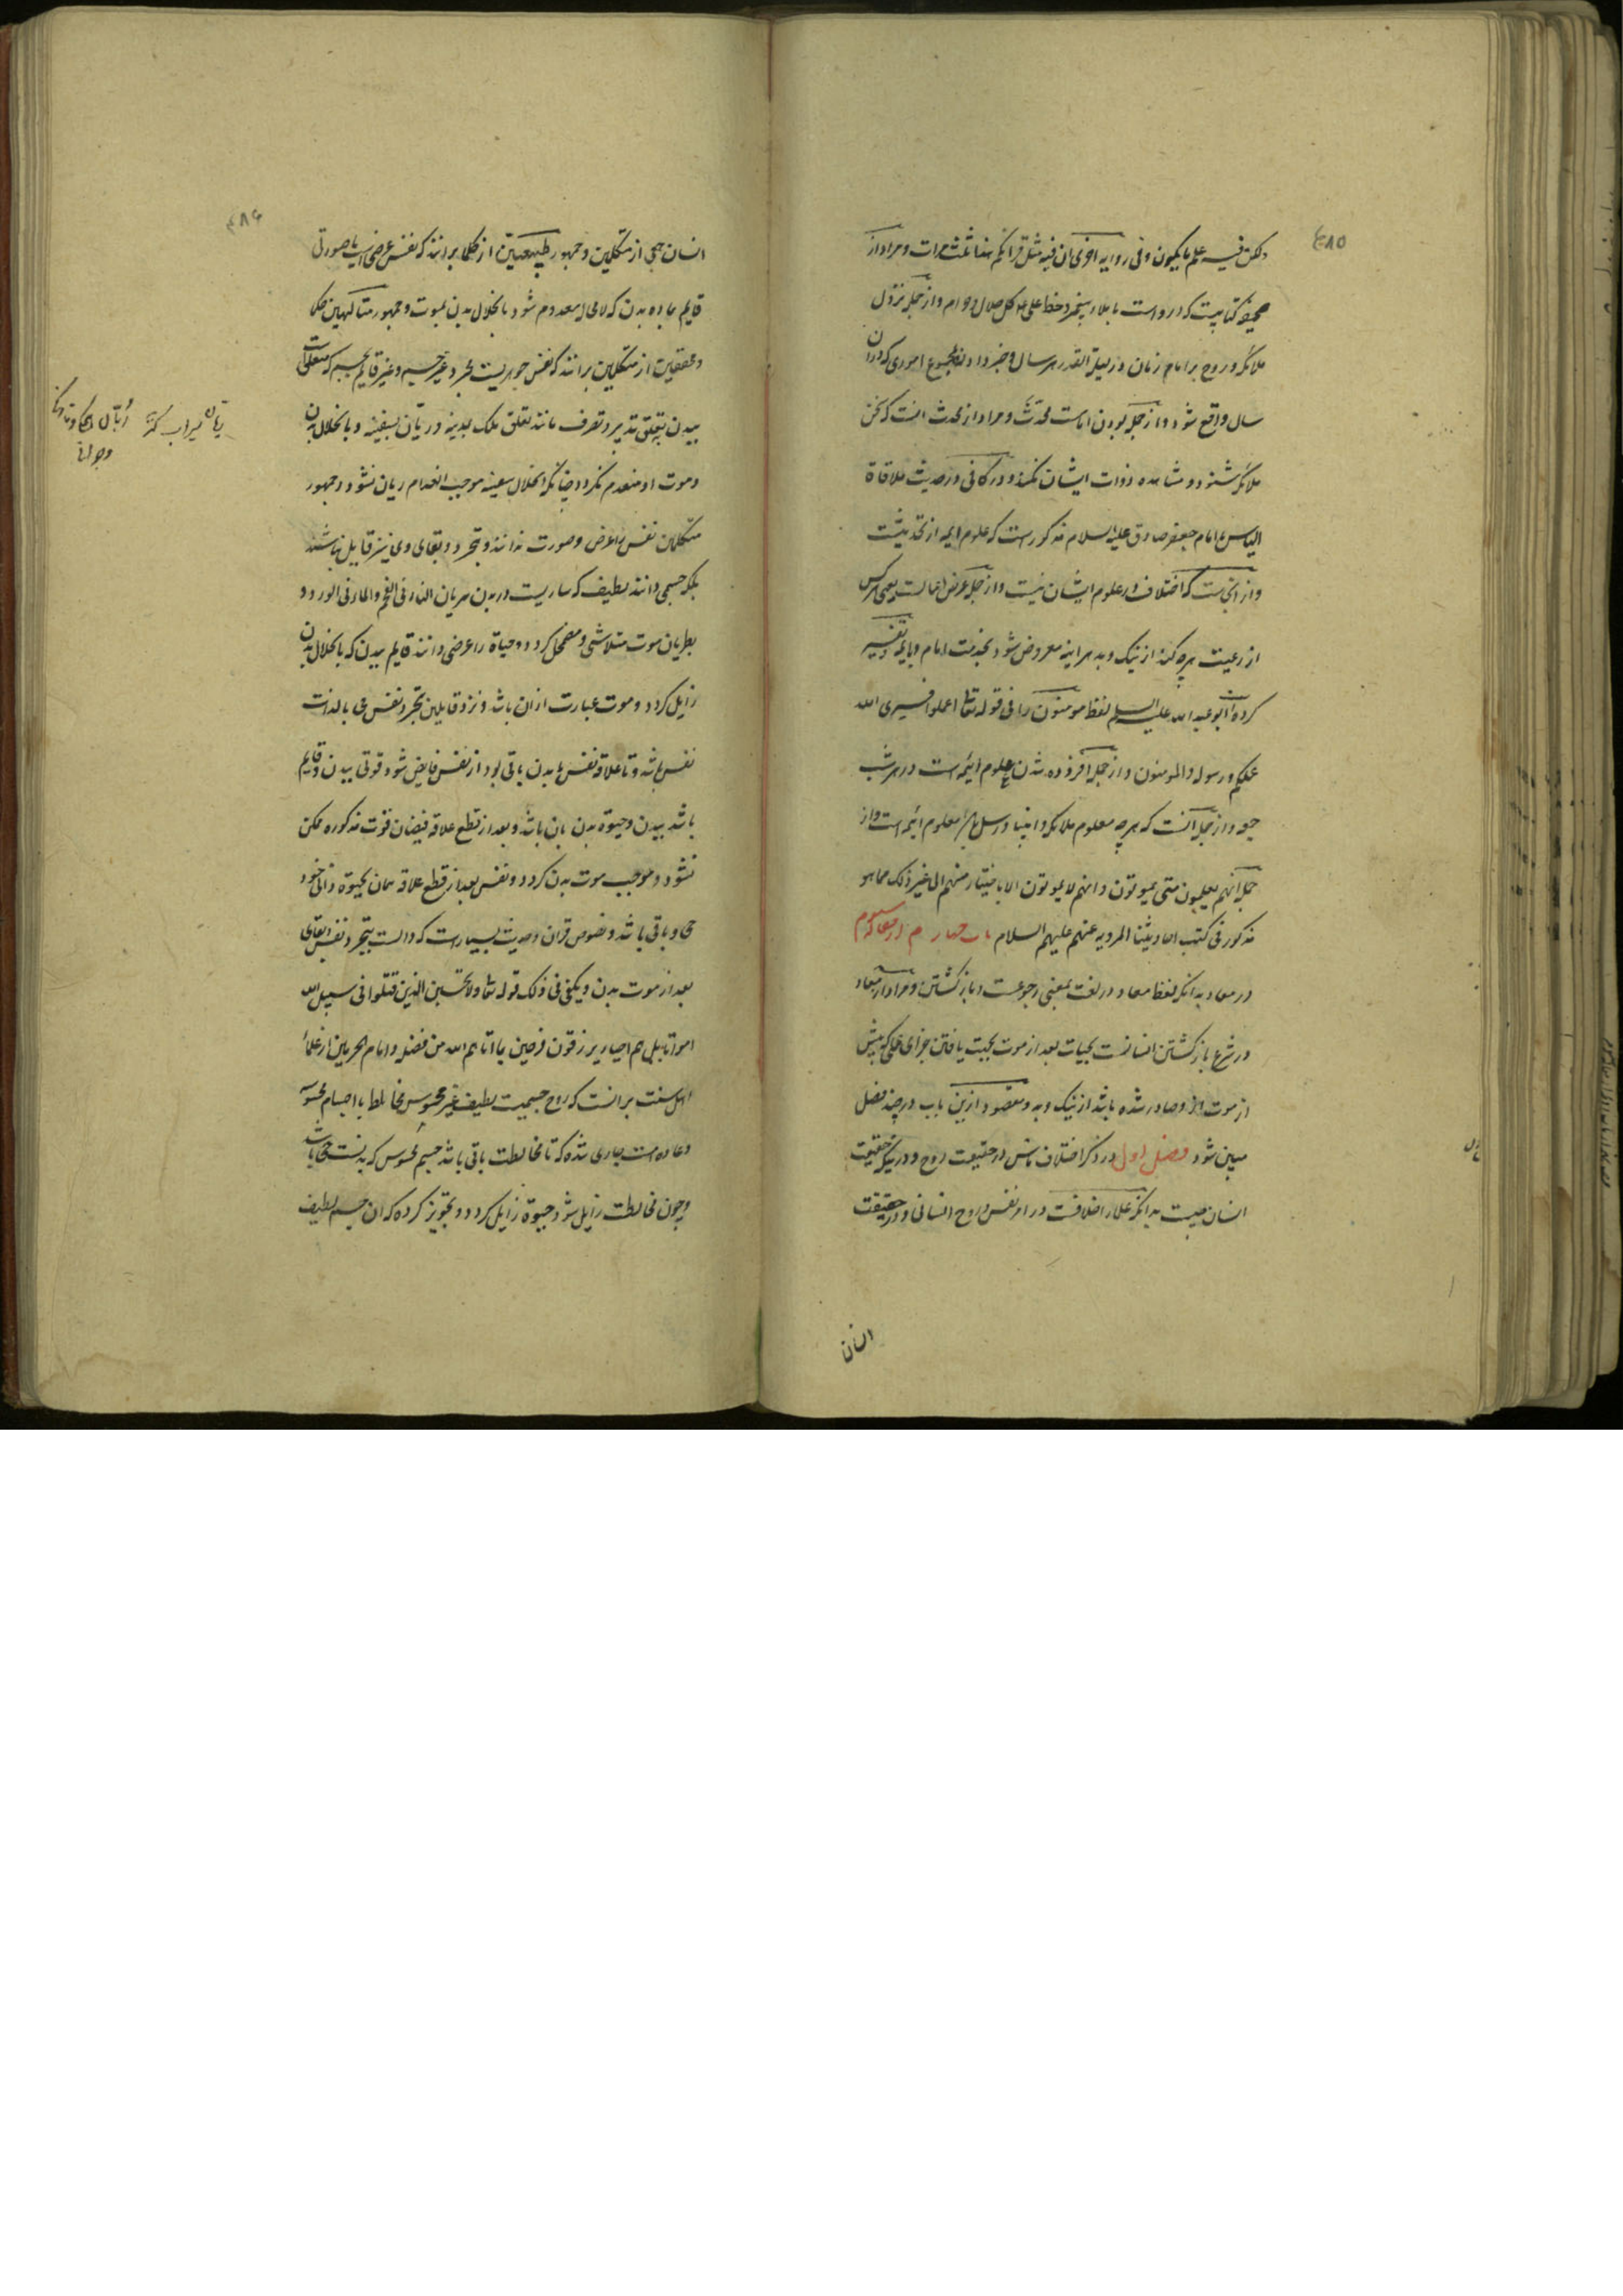 ۴۸۵
ولکن فیه علم ما یکون و فی روایه اخری ان فیه مثل قرآنکم هذا ثلث مرات و مراد از
صحیفه کتابیست که در و است باملاء پیغمبر و خط علی علم کل حلال و حرام و از جمله نزول
ملائکه و روح بر امام زمان در لیلة القدر هر سال و خبر دادن مجموع اموری که در ان
سال واقع شود و از جمله بودن امامست محدَّث و مراد از محدث انست که سخن
ملائکه شنود و مشاهده ذوات ایشان نکند و در کافی در حدیث ملاقاة
الیاس با امام جعفر صادق علیه السلام مذکور است که علوم ایمه از تحدیثست
و از اینجاست که اختلاف در علوم ایشان نیست و از جمله عرض اعمالست یعنی هر کس
از رعیت هرچه کند از نیک و بد هراینه معروض شود بخدمت امام و بایمه تفسیر
کرده است ابو عبد الله علیه السلم لفظ مومنون را فی قوله تعالی اعملوا فسیری الله
عملکم و رسوله و المومنون و از جمله افزوده شدن علوم ائمه است در هر شب
جمعه و از جمله آنست که هرچه معلوم ملائکه و انبیا و رسل باشد معلوم ائمه است و از
جمله آنهم یعلمون متی یموتون و انهم لا یموتون الا باختیار منهم الی غیر ذلک مما هو
مذکور فی کتب احادیثنا المرویه عنهم علیهم السلام باب چهارم از مقاله سوم
در معاد بدانکه لفظ معاد در لغت بمعنی رجوعست و بازگشتن و مراد از معاد
در شرع بازگشتن انسانست بحیات بعد از موت بجهت یافتن جزای عملی که پیش
از موت ازو صادر شده باشد از نیک و بد و مقصود ازین باب در چند فصل
مبین شود فصل اول در ذکر اختلاف ناس در حقیقت روح و در اینکه حقیقت
انسان چیست بدانکه علما را اختلافست در امر نفس و روح انسانی و در حقیقت
انسان
۴۸۶
انسان جمعی از متکلمین و جمهور طبیعیین از حکما برانند که نفس عرضی است یا صورتی
قایم بماده بدن که لا محال معدوم شود بانحلال بدن بموت و جمهور متالهین حکما
و محققین از متکلمین برانند که نفس جوهریست مجرد غیر جسم و غیر قایم بجسم که متعلقست
ببدن بتعلق تدبیر و تصرف مانند تعلق ملک بمدینه و ربّان بسفینه و بانحلال بدن
و موت او منعدم نگردد چنانکه انحلال سفینه موجب انعدام ربان نشود و جمهور
متکلمین نفس را عرض و صورت ندانند و بتجرد و بقای وی نیز قایل نباشند
بلکه جسمی دانند لطیف که ساریست در بدن سریان النار فی الفحم و الماء فی الورد و
بطریان موت متلاشی و مضمحل گردد و حیاة را عرضی دانند قایم ببدن که بانحلال بدن
زایل گردد و موت عبارت ازان باشد و نزد قایلین بتجرد نفس حی بالذات
نفس باشد و تا علاقه نفس با بدن باقی بود از نفس فایض شود قوتی ببدن و قایم
باشد ببدن و حیوة بدن بان باشد و بعد از قطع علاقه فیضان قوت مذکوره ممکن
نشود و موجب موت بدن گردد و نفس بعد از قطع علاقه همان بحیوة ذاتی خود
حی و باقی باشد و نصوص قران و حدیث بسیار است که دالست بتجرد نفس و بقای
بعد از موت بدن و یکفی فی ذلک قوله تعالی و لا تحسبن الذین قتلوا فی سبیل الله
امواتا بل هم احیاء یرزقون فرحین بما اتاهم الله من فضله و امام الحرمین از علماء
اهل سنت برانست که روح جسمیست لطیف غیر محسوس مخالط با اجسام محسوسه
و عادت است جاری شده که تا مخالطت باقی باشد جسم محسوس که بدنست حی باشد
و چون مخالطت زایل شود حیوة زایل گردد و تجویز کرده که ان جسم لطیف